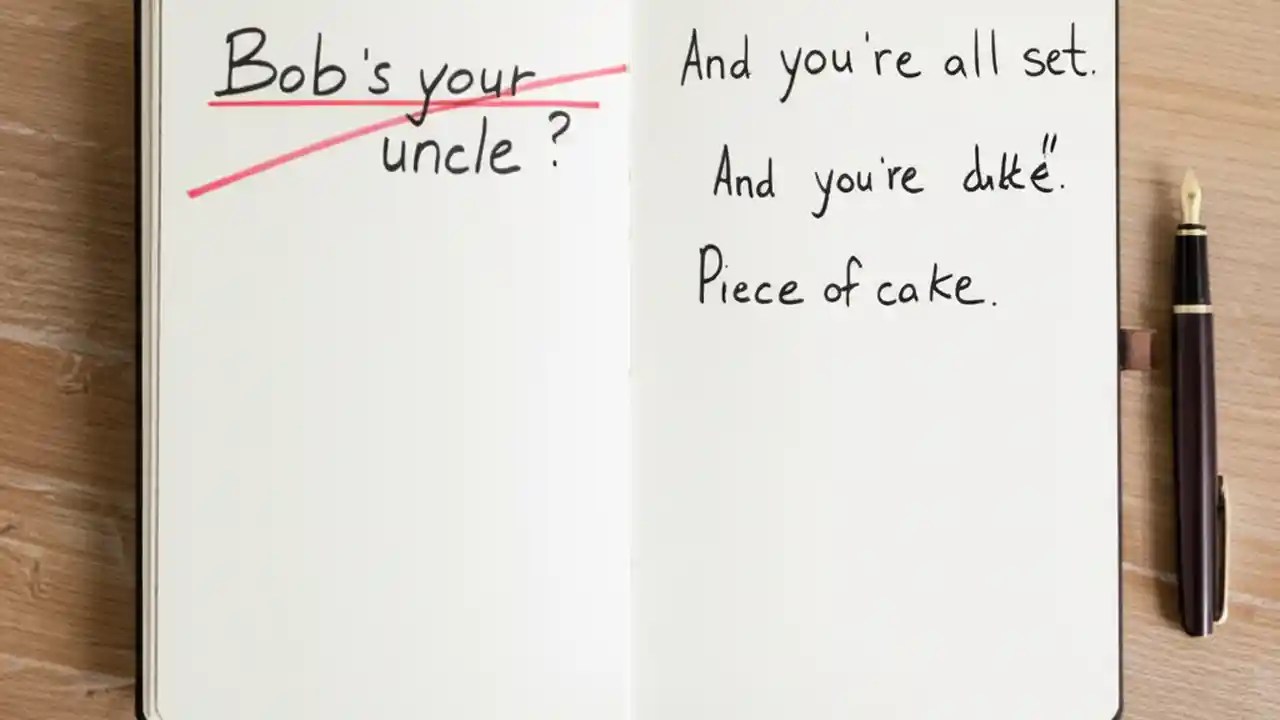 Bob's your
uncle?
And you're all set.
And you're
Piece of cake.